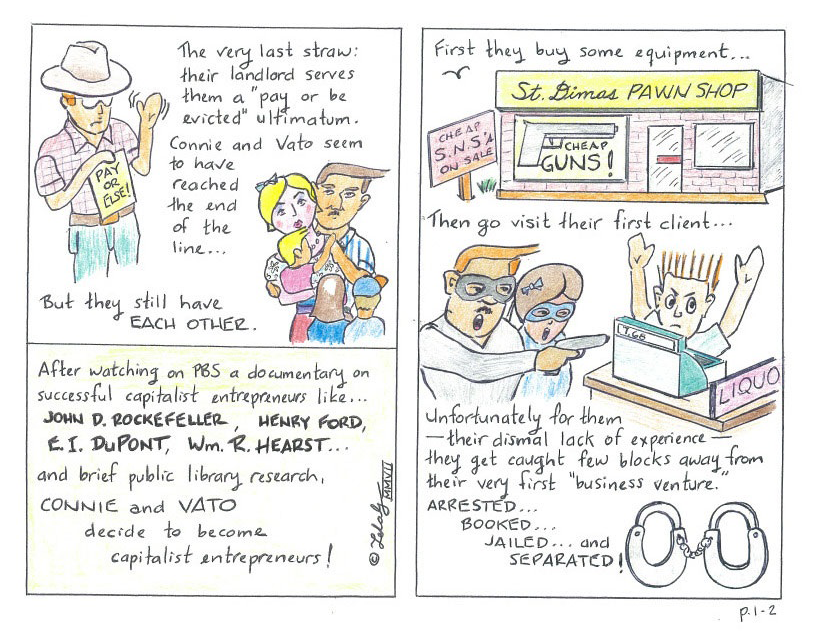 The very last straw:
their landlord serves
them a "pay or be
evicted" ultimatum.
Connie and Vato seem
to have
reached
the end
of the
line...
PAY
OR
ELSE!
But they still have
EACH OTHER.
After watching on PBS a documentary on
successful capitalist entrepreneurs like...
JOHN D. ROCKEFELLER, HENRY FORD,
E. I. DuPONT, Wm. R. HEARST...
and brief public library research,
CONNIE and VATO
decide to become
capitalist entrepreneurs!
MMVII
First they buy some equipment...
St. Dimas PAWN SHOP
CHEAP
S.N.S's
ON SALE
CHEAP
GUNS!
Then go visit their first client...
LIQUO
Unfortunately for them
—their dismal lack of experience—
they get caught few blocks away from
their very first "business venture."
ARRESTED...
BOOKED...
JAILED... and
SEPARATED!
p. 1-2